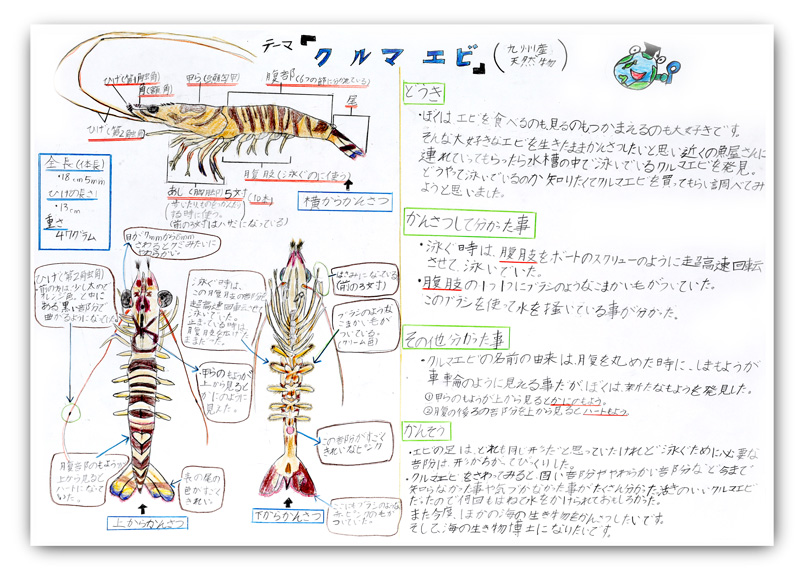 テーマ「クルマエビ」(九州産 天然物)
ひげ(第1触角)
角(額角)
甲ら(頭胸甲)
腹部(6つの節に分かれている)
尾
ひげ(第2触角)
腹肢(泳ぐのに使う)
あし(胸脚)5対(10本)
する時に使う。
(前の3対はハサミになっている)
横からかんさつ
全長(体長)
・18cm5mm
ひげの長さ
・13cm
重さ
47グラム
どうき
・ぼくはエビを食べるのも見るのもつかまえるのも大好きです。
そんな大好きなエビを生きたままかんさつしたいと思い近くの魚屋さんに
連れていってもらったら水槽の中で泳いでいるクルマエビを発見。
どうやって泳いでいるのか知りたくてクルマエビを買ってもらい調べてみ
ようと思いました。
かんさつして分かった事
・泳ぐ時は、腹肢をボートのスクリューのように超高速回転
させて、泳いでいた。
・腹肢の1つ1つにブラシのようなこまかい毛がついていた。
このブラシを使って水を掻いている事が分かった。
その他分かった事
・クルマエビの名前の由来は、腹を丸めた時に、しまもようが
車輪のように見える事だが、ぼくは、新たなもようを発見した。
①甲らのもようが上から見るとかにのもよう。
②腹の後ろの部分を上から見るとハートもよう。
かんそう
・エビの足は、どれも同じ形だと思っていたけれど泳ぐために必要な
部分は、形がちがってびっくりした。
・クルマエビをさわってみると固い部分ややわらかい部分など今まで
知らなかった事や気づかなかった事がたくさん分かった。活きのいいクルマエビ
だったので何回もはねて水をかけられておもしろかった。
また今度、ほかの海の生き物もかんさつしたいです。
そして、海の生き物博士になりたいです。
さわるとグミみたいに
やわらかい
ひげ(第2触角)
オレンジ色。
ある黒い部分で
曲がるようになっていた
泳ぐ時は、
この腹肢の部分が
超高速回転させて
泳いでいた。
止まっている時は、
はさみになっている
(前の3対)
ブラシのような
こまかい毛が
ついている
(クリーム色)
・甲らのもようが
上から見ると
かにのように
見えた。
腹部のもようが
上から見ると
ハートになって
いた。
表の尾の
色がすごく
きれい
この部分がすごく
きれいなピンク
ここにもブラシのような
赤ピンクの毛が
ついていた。
上からかんさつ
下からかんさつ